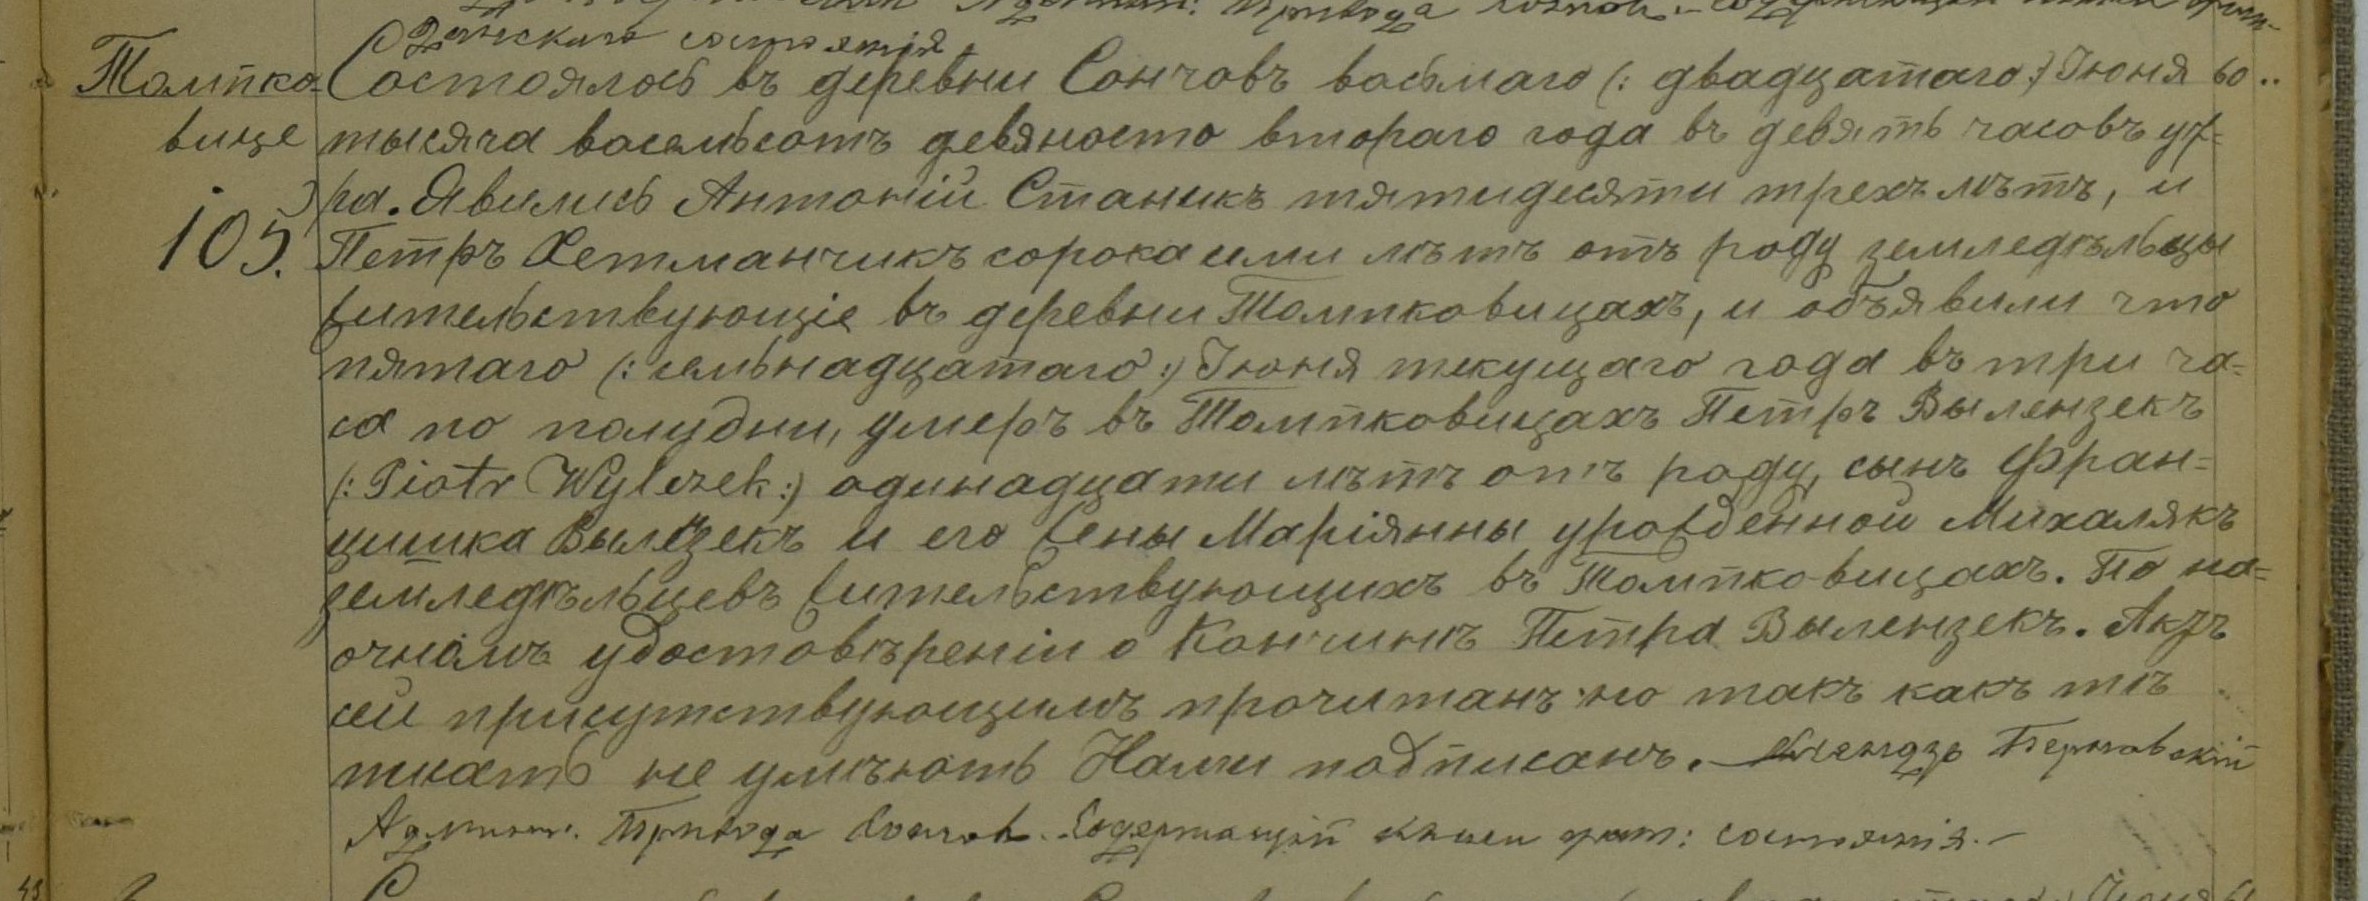 Томпко-
вице
105.
Состоялось въ деревни Сончовъ восьмаго (: двадцатаго :) Іюня 60..
тысяча восемьсотъ девяносто втораго года въ девять часовъ ут-
ра. Явились Антоній Станикъ пятидесяти трехъ лѣтъ, и
Петръ Хетманчикъ сорока ими лѣтъ отъ роду земледѣльцы
жительствующіе въ деревни Томпковицахъ, и объявили что
пятаго (: семьнадцатаго :) Іюня текущаго года въ три ча-
са по полудни, умеръ въ Томпковицахъ Петръ Вылензекъ
(: Piotr Wylezek :) одинадцати лѣтъ отъ роду, сынъ Фран-
цишка Вылезекъ и его жены Маріянны урожденной Михалякъ
земледѣльцевъ жительствующихъ въ Томпковицахъ. По на-
очномъ удостовѣреніи о кончинѣ Петра Вылензекъ. Актъ
сей присутствующимъ прочитанъ но такъ какъ тѣ
писать не умѣютъ Нами подписанъ. Ксендзъ
Админ. Прихода Содержащій книги гражд: состоянія.